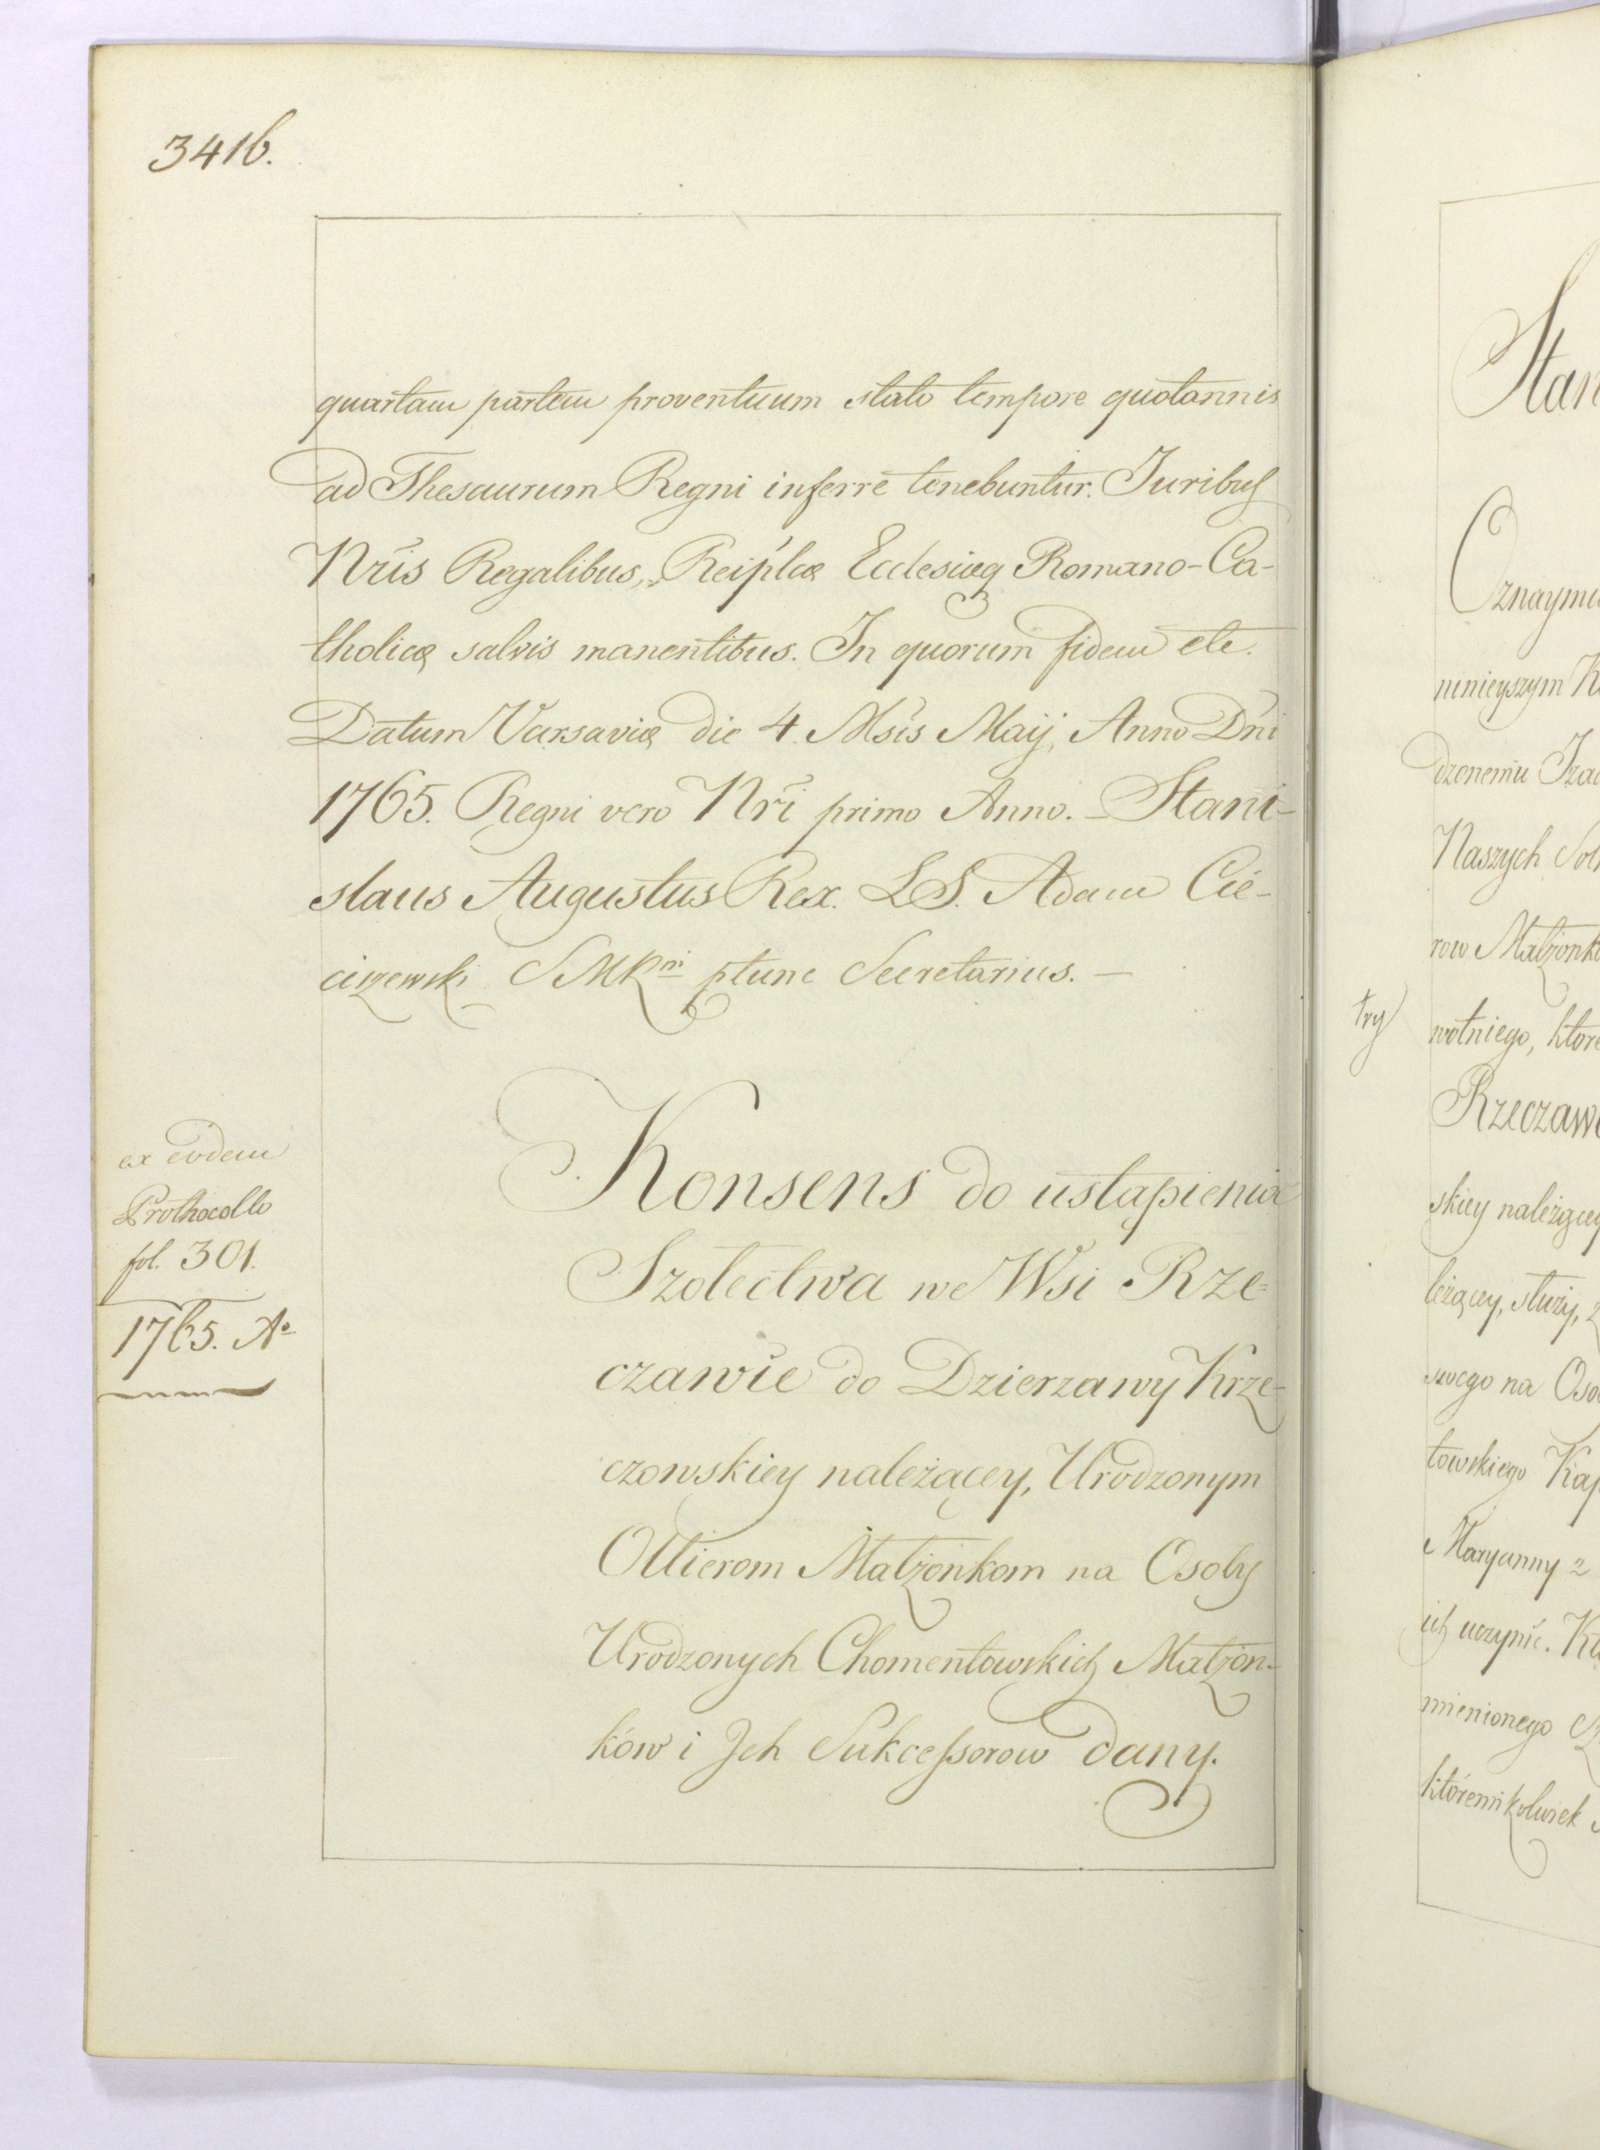 3416.
quartam partem proventuum stato tempore quotannis
ad Thesaurum Regni inferre tenebuntur. Juribus
Nris Regalibus, Reiplcæ Ecclesiæq Romano-Ca-
tholicæ salvis manentibus. In quorum fidem etc.
Datum Varsaviæ die 4. Msis Maij, Anno Dni
1765. Regni vero Nri primo Anno. – Stani-
slaus Augustus Rex. LS. Adam Cie-
ciszewski SMRni ptunc Secretarius. –
ex eodem
Prothocollo
fol. 301.
1765. Ao
Konsens do ustąpienia
Szołectwa we Wsi Rze-
czawie do Dzierzawy Krze-
czowskiey należącey, Urodzonym
Ottierom Małżonkom na Osoby
Urodzonych Chomentowskich Małżon-
ków i Jch Sukcessorow dany.
Stan
Oznaymu
ninieyszym K
dzonemu Iza
Naszych
row Małżonk
try
wotniego, ktore
Rzeczaw
skiey należącey
leżącey, służy, z
swego na Oso
towskiego Kap
Maryanny z
ich uczynić. K
mienionego
któremikolwiek